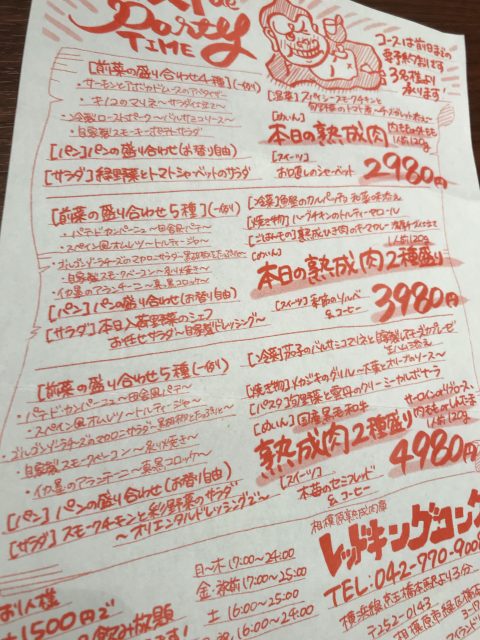 Party
TIME
コースは前日までの
要予約になります
3名様より
承ります!
[前菜の盛り合わせ4種](一例)
・サーモンとアボカド
・キノコのマリネ〜サラダ仕立て〜
・冷製ローストポーク〜バルサミコソース〜
・自家製スモーキーポテトサラダ
[パン]パンの盛り合わせ(お替り自由)
[サラダ]緑野菜とトマトシャーベットのサラダ
[温菜]スパイシースモークチキンと
[めいん]
本日の熟成肉
1人前120g
[スイーツ]
お口直しのシャーベット
2980円
[前菜の盛り合わせ5種](一例)
・パテドカンパーニュ〜田舎風パテ〜
・スペイン風オムレツ〜トルティージャ〜
・ゴルゴンゾーラチーズのマカロニサラダ
・自家製スモークベーコン〜炙り焼き〜
・イカ墨のアランチーニ〜真黒コロッケ〜
[パン]パンの盛り合わせ(お替り自由)
[サラダ]本日入荷野菜のシェフ
おまかせサラダ〜自家製ドレッシング〜
[冷菜]魚介のカルパッチョ 和菜添え
[焼き物]ハーブチキンのトルティーヤロール
[ごはんもの]熟成ひき肉のキーマカレー
[めいん]
1人前120g
本日の熟成肉2種盛り
[スイーツ]季節のソルベ
&コーヒー
3980円
[前菜の盛り合わせ5種](一例)
・パテドカンパーニュ〜田舎風パテ〜
・スペイン風オムレツ〜トルティージャ〜
・ゴルゴンゾーラチーズのマカロニサラダ
・自家製スモークベーコン〜炙り焼き〜
・イカ墨のアランチーニ〜真黒コロッケ〜
[パン]パンの盛り合わせ(お替り自由)
[サラダ]スモークチキンと彩野菜のサラダ
〜オリエンタルドレッシングで〜
[冷菜]茄子のバルサミコマリネと
生ハム添え
[焼き物]メカジキのグリル〜ケッパーとオリーブのソース〜
[パスタ]旬野菜と雲丹のクリーミーカルボナーラ
[めいん]国産黒毛和牛
1人前120g
熟成肉2種盛り
[スイーツ]
木苺のセミフレッド
&コーヒー
4980円
相模原熟成肉庫
レッドキングコング
TEL:042-770-900
横浜線 橋本駅より3分
〒252-0143
相模原市緑区橋本
日〜木 17:00〜24:00
金・祝前 17:00〜25:00
土 16:00〜25:00
16:00〜24:00
お1人様
1500円で
飲み放題